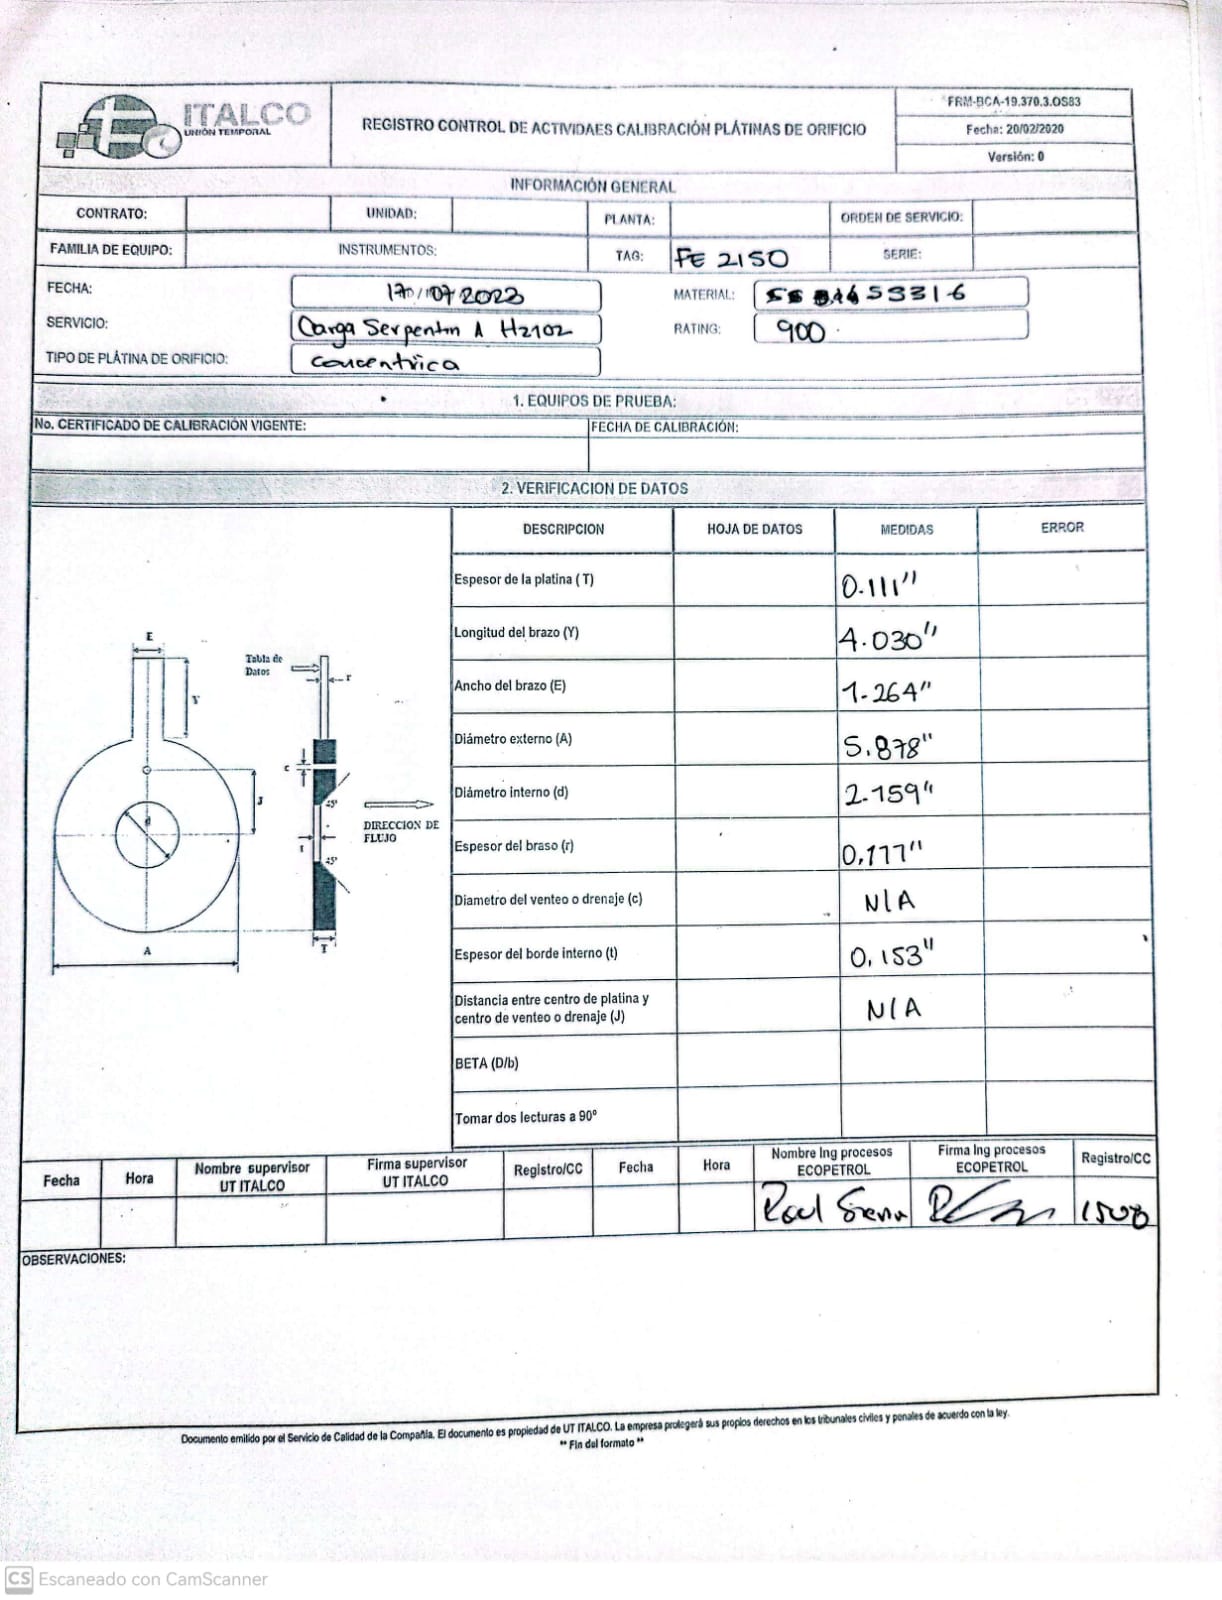 ITALCO
UNIÓN TEMPORAL
REGISTRO CONTROL DE ACTIVIDAES CALIBRACIÓN PLÁTINAS DE ORIFICIO
FRM-BCA-19.370.3.OS83
Fecha: 20/02/2020
Versión: 0
INFORMACIÓN GENERAL
CONTRATO: UNIDAD: PLANTA: ORDEN DE SERVICIO:
FAMILIA DE EQUIPO: INSTRUMENTOS: TAG: FE 2150 SERIE:
FECHA: 17/07 2023 MATERIAL: SS316
SERVICIO: Carga Serpentin A H2102 RATING: 900
TIPO DE PLÁTINA DE ORIFICIO: concentrica
1. EQUIPOS DE PRUEBA:
No. CERTIFICADO DE CALIBRACIÓN VIGENTE: FECHA DE CALIBRACIÓN:
2. VERIFICACION DE DATOS
DESCRIPCION HOJA DE DATOS MEDIDAS ERROR
Espesor de la platina ( T) 0.111"
Longitud del brazo (Y) 4.030"
Ancho del brazo (E) 1.264"
Diámetro externo (A) 5.878"
Diámetro interno (d) 2.159"
Espesor del braso (r) 0,177"
Diametro del venteo o drenaje (c) N/A
Espesor del borde interno (t) 0,153"
Distancia entre centro de platina y
centro de venteo o drenaje (J) N/A
BETA (D/b)
Tomar dos lecturas a 90º
E
Tabla de
Datos
r
Y
c
J
45º
d
DIRECCION DE
FLUJO
t
45º
A
T
Fecha Hora Nombre supervisor UT ITALCO Firma supervisor UT ITALCO Registro/CC Fecha Hora Nombre Ing procesos ECOPETROL Firma Ing procesos ECOPETROL Registro/CC
Raul Sierra
OBSERVACIONES:
Documento emitido por el Servicio de Calidad de la Compañía. El documento es propiedad de UT ITALCO. La empresa protegerá sus propios derechos en los tribunales civiles y penales de acuerdo con la ley.
** Fin del formato **
CS Escaneado con CamScanner